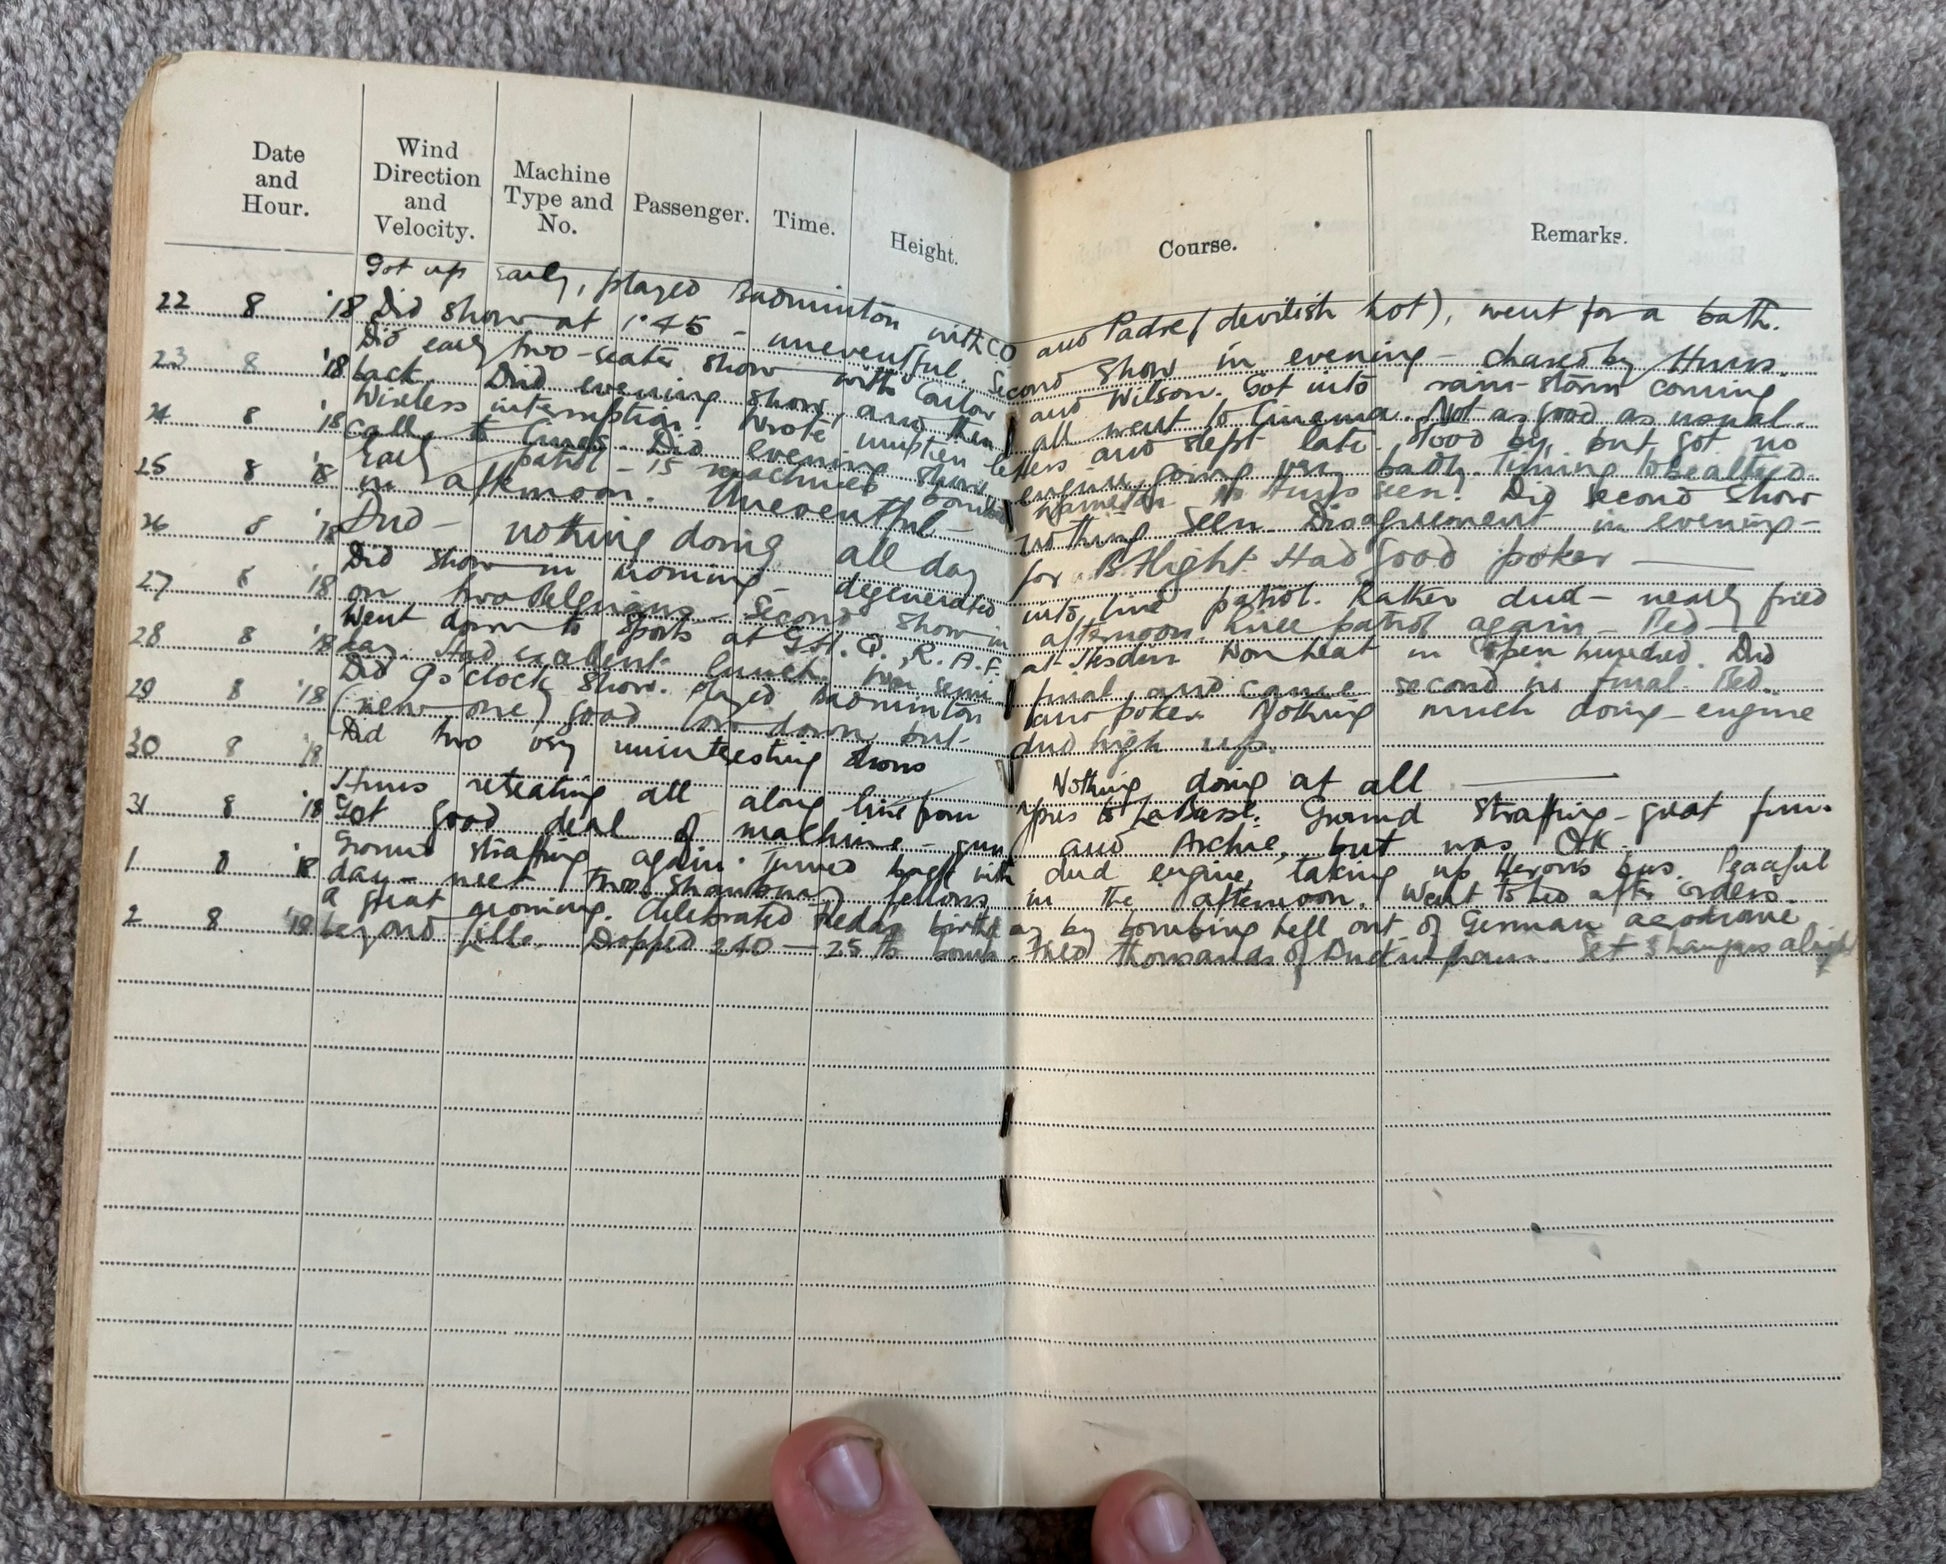 Date and Hour. Wind Direction and Velocity. Machine Type and No. Passenger. Time. Height. Course. Remarks.
Got up early, played Badminton with CO and Padre (devilish hot), went for a bath.
22 8 '18 Did show at 1.45 - uneventful. Second show in evening - chased by Huns.
Did early two-seater show with Carlaw and Wilson. Got into rain-storm coming
23 8 '18 back. Did evening show, and then all went to Cinema. Not as good as usual.
Wireless interruption. Wrote umpteen letters and slept late. Stood by, but got no
24 8 '18 calls to Did evening show engine going very badly.
Early patrol - 15 machines bombed No Huns seen! Did second show
25 8 '18 in afternoon. Uneventful - nothing seen. Disagreement in evening -
26 8 '18 Dud - nothing doing all day for B Flight. Had good poker
Did show in morning - degenerated into line patrol. Rather dud - nearly fired
27 8 '18 on two Belgians. Second show in afternoon. Line patrol again - Bed -
Went down to sports at G.H.Q., R.A.F. at Hesdin. Won heat in Open hundred. Did
28 8 '18 day. Had excellent lunch, won semi-final, and came second in final. Bed.
Did 9 o'clock show. Played Badminton and poker. Nothing much doing - engine
29 8 '18 (new one) good low down, but dud high up.
30 8 '18 Did two very uninteresting shows Nothing doing at all
Huns retreating all along line from Ypres to La Bassé. Ground strafing - great fun.
31 8 '18 Got good deal of machine-gun and Archie, but was OK.
Ground strafing again. Turned back with dud engine, taking up Heron's bus. Peaceful
1 8 '18 day - met two fellows in the afternoon. Went to bed after orders.
a great morning. Celebrated birthday by bombing hell out of German aerodrome
2 8 '18 beyond Lille. Dropped 240 - 25 lb bombs. Fired thousands of Set 3 hangars alight